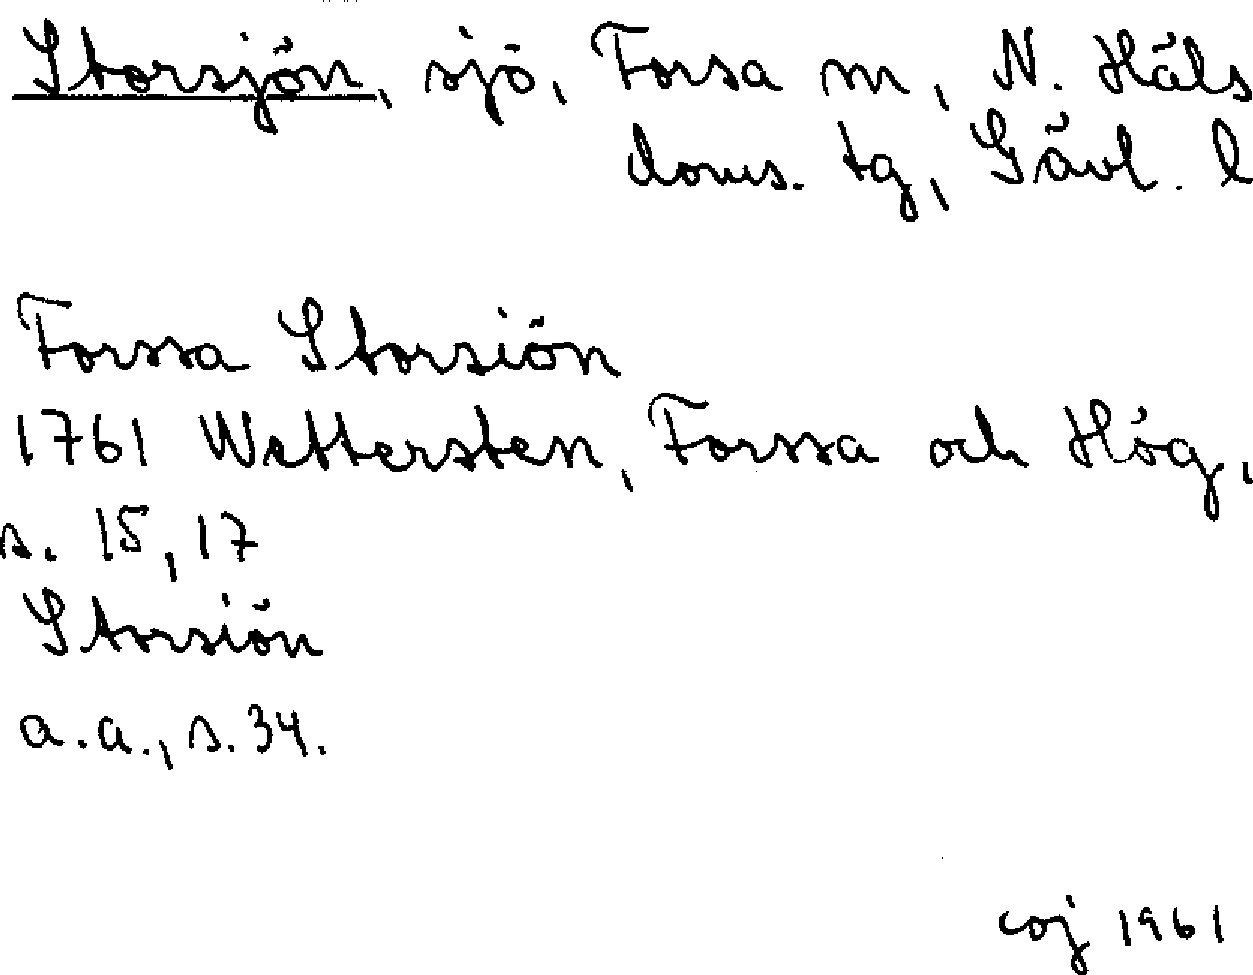 Storsjön, sjö, Forsa m, N. Häls
doms. tg, Gävl. l
Forssa Storsiön
1761 Wettersten, Forssa och Hög,
s. 15, 17
Storsiön
a.a., s. 34.
coj 1961